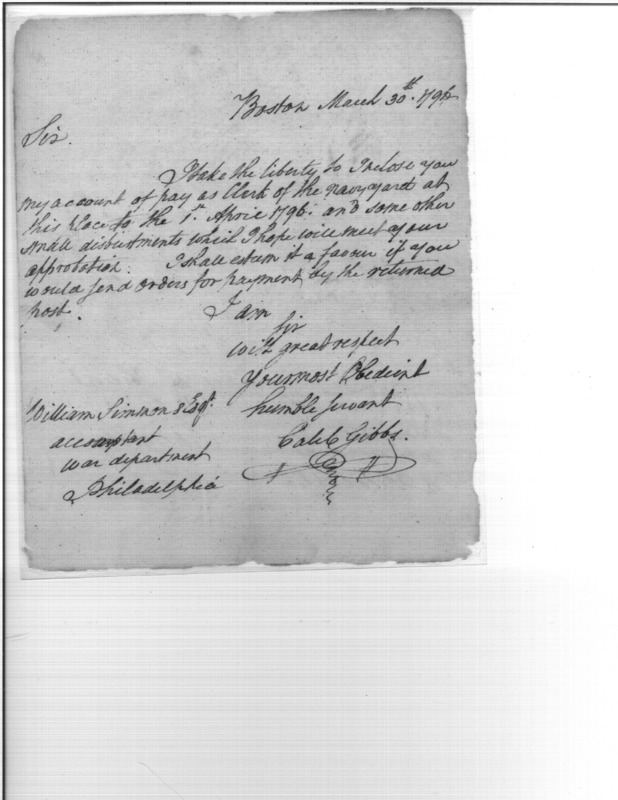 Boston March 30th. 1796
Sir.
I take the liberty to Inclose you
my account of pay as Clerk of the navy yard at
this place to the 1st. April 1796. and some other
small disburstments which I hope will meet your
approbation. I shall esteem it a favour if you
would send orders for payment by the returned
post.
I am
Sir
with great respect
your most Obedient
humble servant
Caleb Gibbs.
William Simmons Esqr.
accomptant
war department
Philadelphia